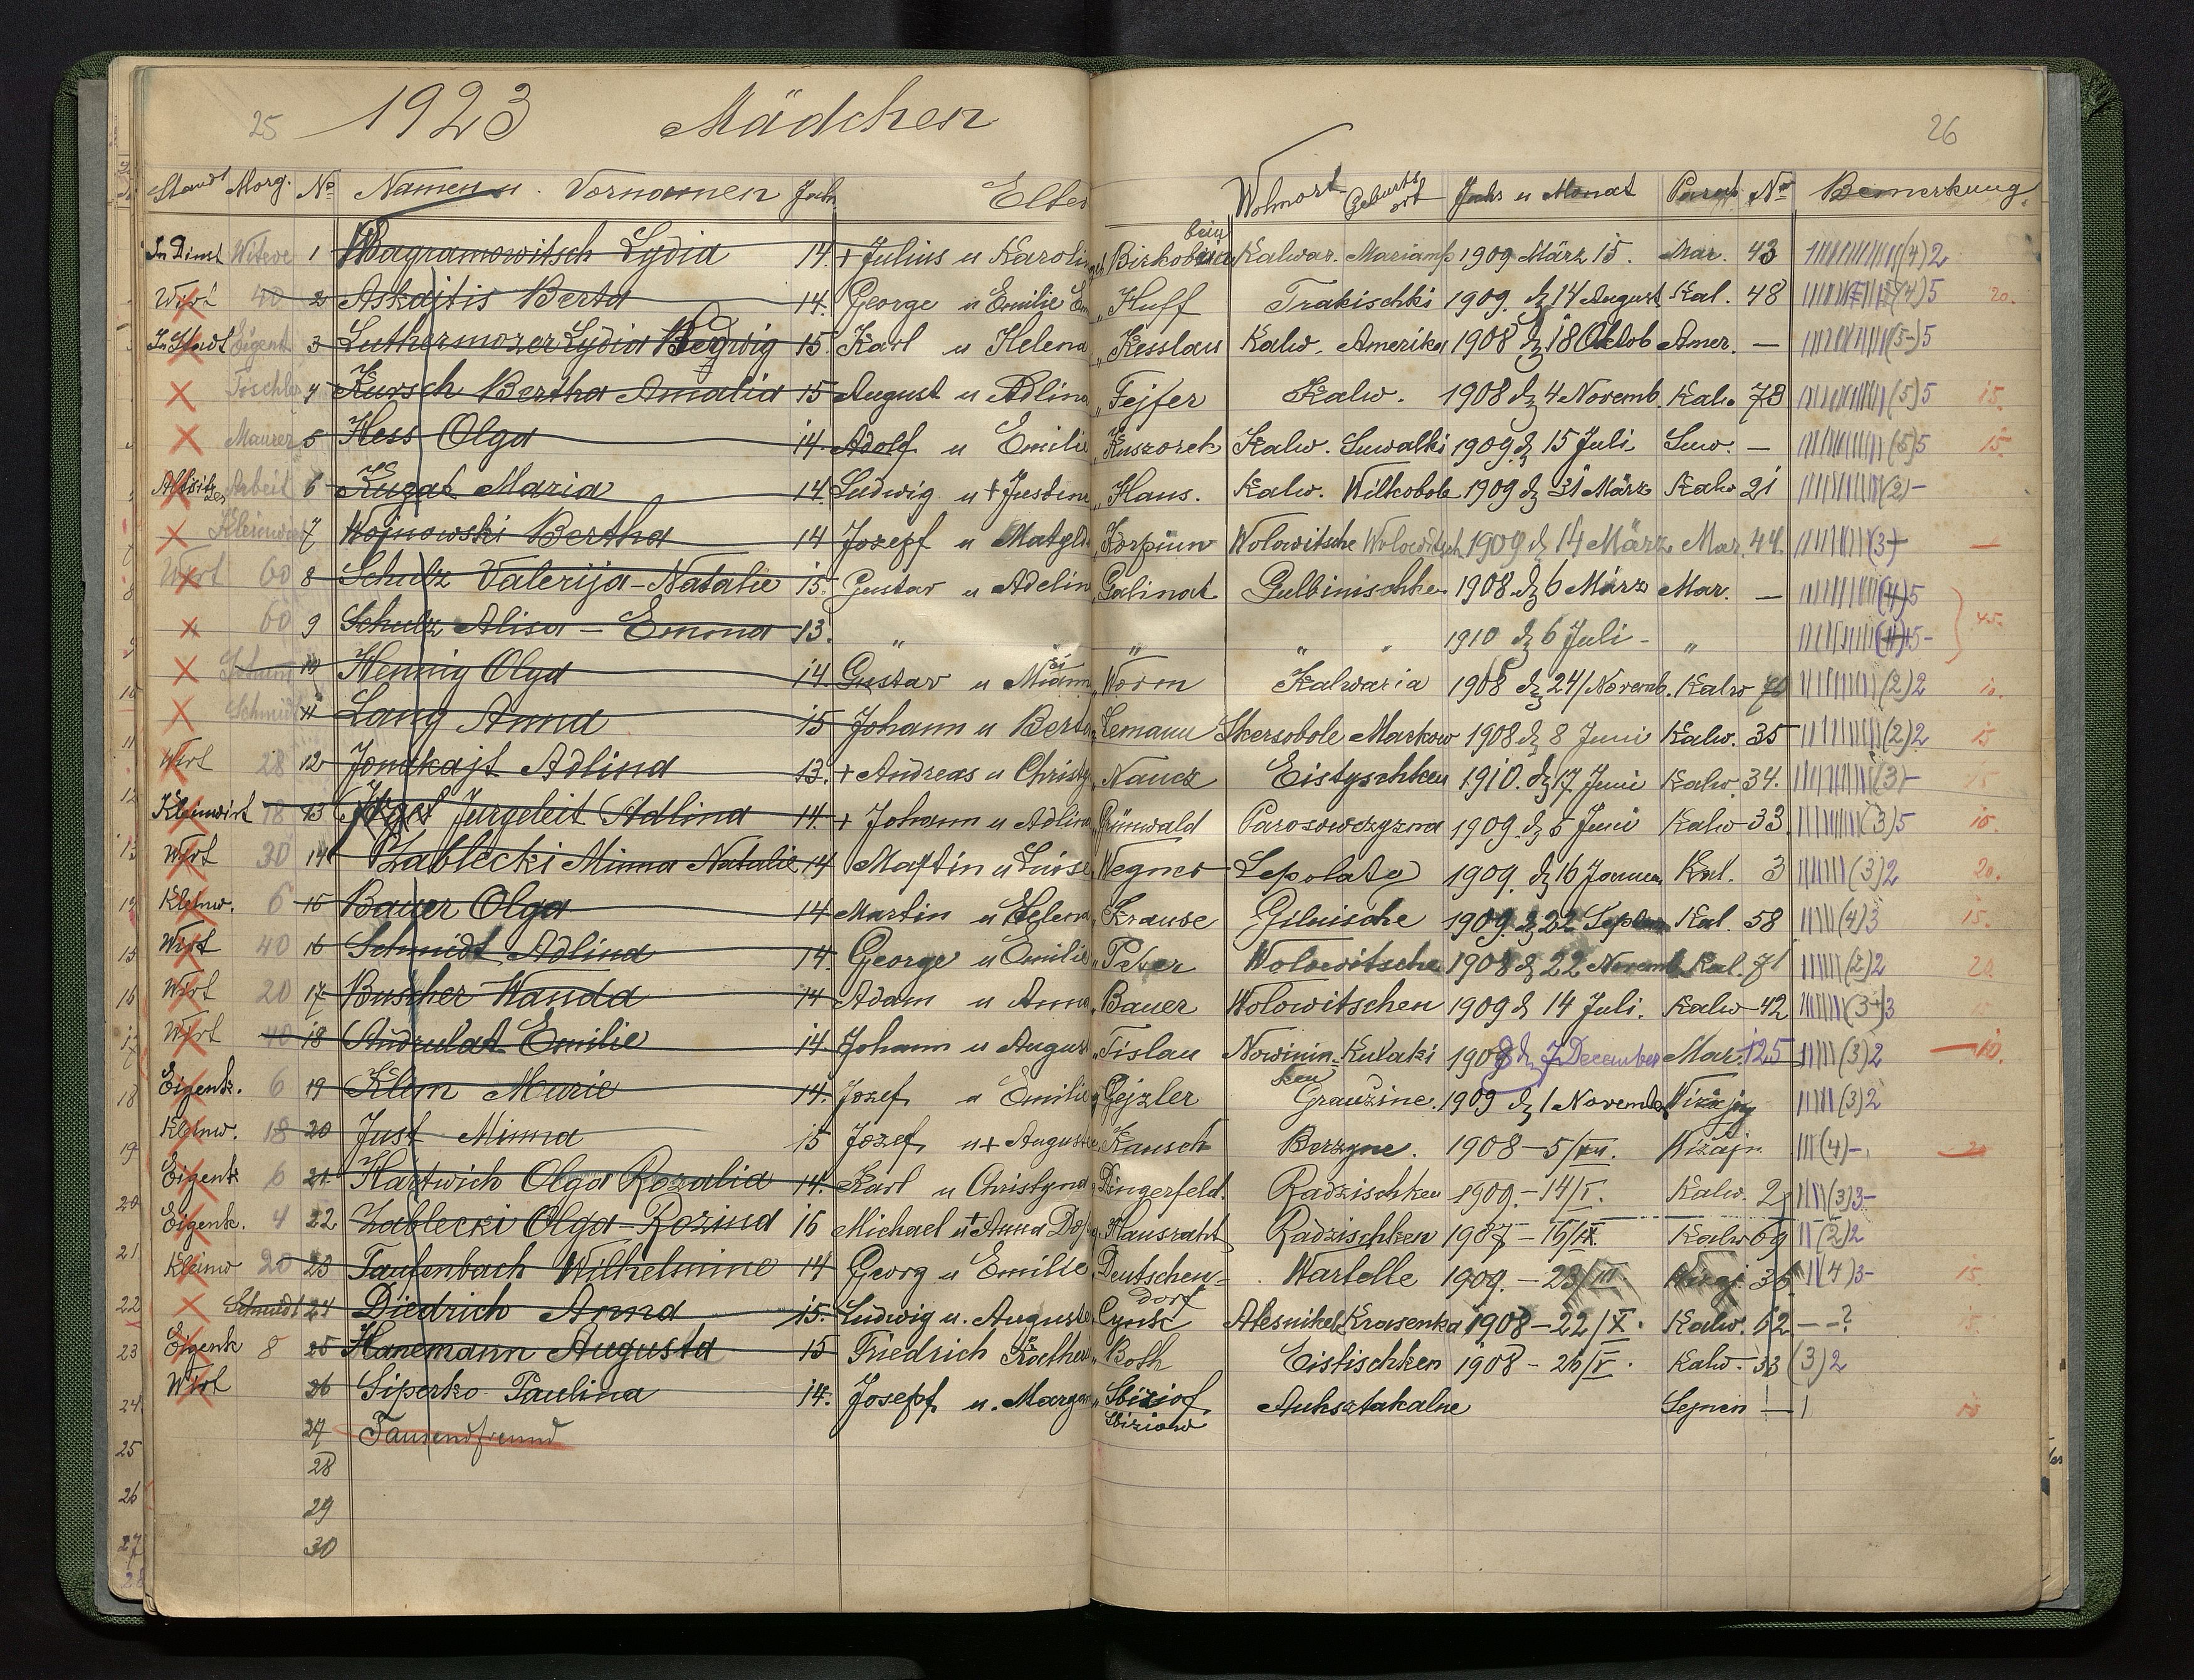 25 1923 Mädchen 26
Standt Morg. № Namen u. Vornamen Jahr Elter Wohnort Geburtsort Jahr u Monat Parat № Bemerkung.
In Dinst Witeve 1 Bagramowitsch Lydia 14. + Julius u Karolin Kalwar. Mariamp 1909 März 15. Mar. 43 (4)2
Wirt 40 2 Askajtis Berta 14. George u Emilie „Huff Trakischki 1909. d 14 August Kal. 48 (4)5 20.
In Stadt Eigent 3 Luthermozer Lydia Hedwig 15 Karl u Helena „Kesslau Kalw. Amerika 1908 d 18 Oktob Amer. — (5-)5
Tischler 4 Kursch Bertha Amalia 15 August u Adlina „Fejfer Kalw. 1908 d 4 Novemb. Kalw 78 (5)5 15.
Maurer 5 Hess Olga 14 Adolf u Emilie „Kuszorek Kalw. Suwalki 1909 d 15 Juli. Suw. — (5)5 15.
Altsitzer Arbeit 6 Zugat Maria 14 Ludwig u + Justine „Haus. Kalw. Wilkobole 1909 d 31 März Kalw 21 (2)-
Kleinwirt 7 Wojnowski Bertha 14 Jozepf u Matylda Korpiun Wolowitsche Wolowitsch 1909 d 14 März Mar. 44. (3+ —
Wirt 60 8 Schulz Valerija-Natalie 15. Gustav u Adelin „Galinat Gulbinischke 1908 d 6 März Mar. — (4)5
60 9 Schulz Alisa - Emma 13. „ „ „ „ 1910 d 6 Juli - „ (4)5- 45.
10 Hennig Olga 14. Gustav u Minna „Worm Kalwaria 1908 d 24/Novemb. Kalw 76 (2)2 10.
Schmidt 11 Lang Anna 15 Johann u Berta „Lemann Skersobole Markow 1908 d 8 Juni Kalw. 35 (2)2 15
Wirt 28 12 Jonakajt Adlina 13. + Andreas u Christy „Naucz Eistyschken 1910. d 17 Juni Kalw. 34. (3)- 15
Kleinwirt 18 13 Jurgeleit Adlina 14. + Johann u Adlina Grünwald Parosowczyzna 1909. d 5 Juni Kalw 33. (3)5 10.
Wirt 30 14 Zablecki Minna Natalie 14 Martin u Luise „Wegner Lepolaty 1909. d 16 Januar Kal. 3 (3)2 20.
Kleinw. 6 15 Bauer Olga 14 Martin u Helena „Krause Gilnische 1909. d 22 Septem Kal. 58 (4)3 15.
Wirt 40 16 Schmidt Adlina 14. George u Emilie „Peter Wolowitsche 1908 d 22 Novemb Kal. 71 (2)2 20.
Wirt 20 17 Buscher Wanda 14 Adam u Anna „Bauer Wolowitschen 1909 d 14 Juli. Kalw 42 (3+)3
Wirt 40 18 Andrulat Emilie 14. Johann u August „Tislau Nowinin- Kulaki 1908 d 7 December Mar. 125 (3)2 10.
ken
Eigentz. 6 19 Klem Marie 14. Jozef u Emilie Gejzler Grauzine. 1909 d 1 Novemb Wizajny (3)2
Kleinw. 18 20 Just Minna 15 Jozef, u + Auguste Kausch Berzyne. 1908 - 5/XII. Wizajn. (4)-. 20
Eigentz 6 21 Hartwich Olga Rozalia 14. Karl u Christyna Dingerfeld. Radzischken 1909. - 14/I. Kalw. 2 (3)3-
Eigentz. 4 22 Zablecki Olga-Rozina 16 Michael u + Anna Hausraht Radzischken 1907 - 16/IX Kalw 69 (2)2
Kleinw 20 23 Taufenbach Wilhelmine 14 Georg u Emilie Deutschen= Wartelle 1909. - 23/III 36 (4)3- 15.
dorf
Schmidt 24 Diedrich Anna 15. Ludwig u. Auguste Alesnikel Krasenka 1908 - 22/X. Kalw. 62 - -? 15.
Eigentz 8 25 Hanemann Augusta 15 Friedrich „Both Eistischken 1908 - 26/V. Kalw. 33 (3)2
Wirt 26 Siperko Paulina 14. Josepf u. Margar Auksztakalne Sejnen — 10
27 Tausendfreund
28
29
30